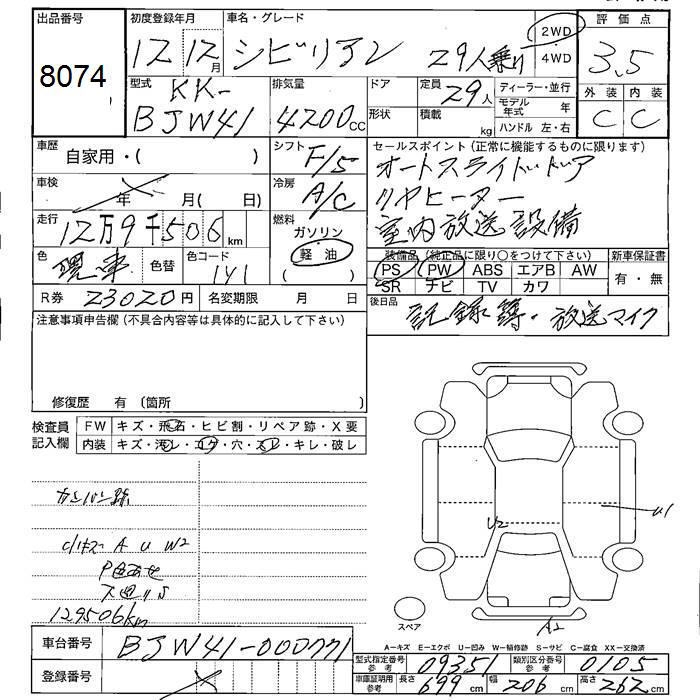 出品番号
8074
初度登録年月
12 12月
車名・グレード
シビリアン 29人乗り
2WD
4WD
評価点
3.5
外装 内装
C C
型式
KK-
BJW41
排気量
4200cc
ドア
形状
定員
29人
積載
kg
ディーラー・並行
モデル年式 年
ハンドル 左・右
車歴
自家用・( )
シフト
F/5
車検
年 月( 日)
冷房
A/C
走行
12万9千506km
燃料
ガソリン
軽油
( )
色
現車
色替
色コード
1Y1
R券 23020円 名変期限 月 日
セールスポイント(正常に機能するものに限ります)
オートスライドドア
リヤヒーター
室内放送設備
装備品(純正品に限り○をつけて下さい)
PS PW ABS エアB AW
SR ナビ TV カワ
新車保証書
有・無
後日品
記録簿・放送マイク
注意事項申告欄(不具合内容等は具体的に記入して下さい)
修復歴 有 (箇所
検査員記入欄
FW キズ・飛石・ヒビ割・リペア跡・X要
内装 キズ・汚レ・コゲ・穴・スレ・キレ・破レ
カンバン跡
小キズ A U W2
P色あせ
下廻りS
129506km
U1
U2
A2
スペア
A-キズ E-エクボ U-凹み W-補修跡 S-サビ C-腐食 XX-交換済
車台番号 BJW41-000771
登録番号
型式指定番号参考 09351 類別区分番号参考 0105
車庫証明用参考 長さ 699cm 幅 206cm 高さ 262cm